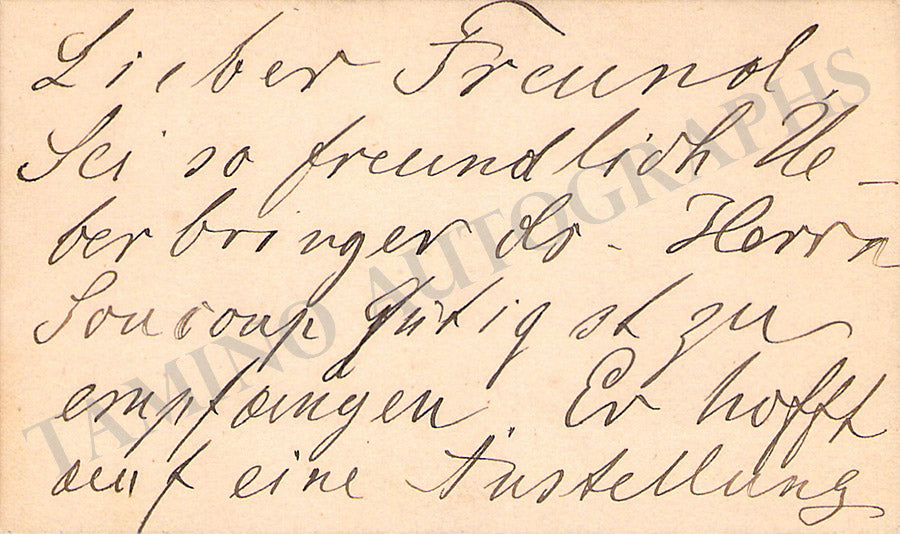 Lieber Freund,
Sei so freundlich Ue-
berbringer ds. Herrn
Soucoup gütigst zu
empfangen. Er hofft
auf eine Anstellung
TAMINO AUTOGRAPHS